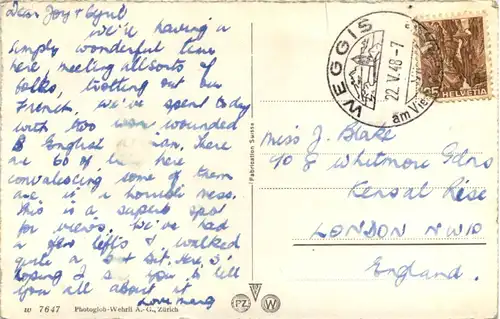 Dear Joy & Cyril
We're having a
simply wonderful time
here meeting all sorts of
folks, trotting out our
French. We've spent today
with two wounded
English
are 60 of here
convalescing some of them
are in a horrible mess.
This is a superb spot
for views. We've had
a few lifts & walked
quite a bit. Here's
hoping I see you to tell
you all about it
Love
117 7647 Photoglob-Wehrli A.-G., Zürich
Fabrication Suisse
PZ W
WEGGIS
22. V. 48 - 7
am Vie
35 HELVETIA
Miss J. Blake
c/o 8 Whitmore Gdns
Kensal Rise
LONDON NW10
England.